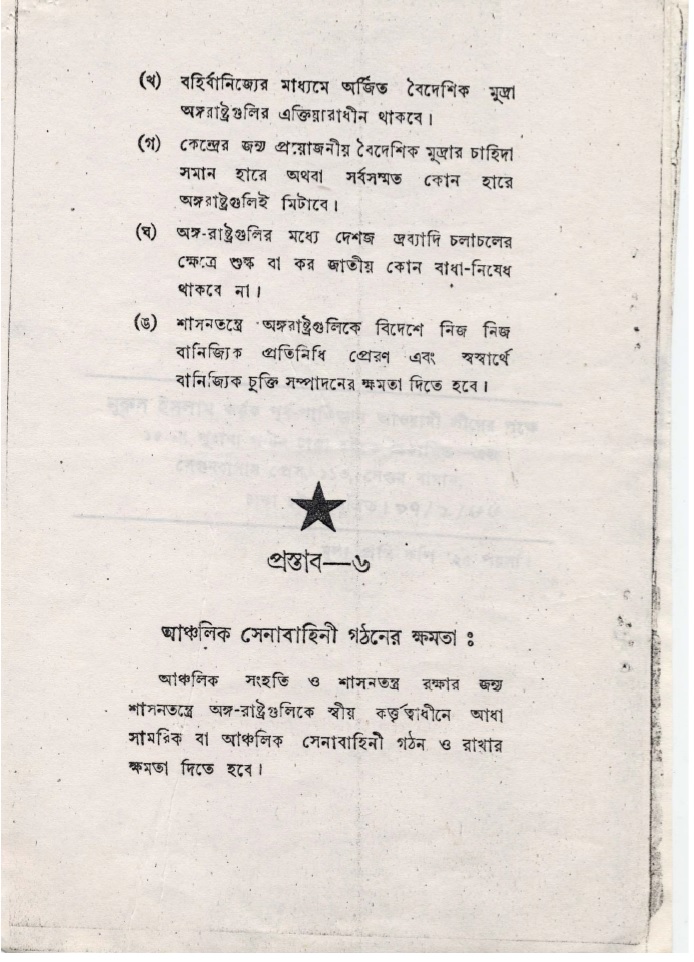 (খ) বহির্বানিজ্যের মাধ্যমে অর্জিত বৈদেশিক মুদ্রা
অঙ্গরাষ্ট্রগুলির এক্তিয়ারাধীন থাকবে।
(গ) কেন্দ্রের জন্য প্রয়োজনীয় বৈদেশিক মুদ্রার চাহিদা
সমান হারে অথবা সর্বসম্মত কোন হারে
অঙ্গরাষ্ট্রগুলিই মিটাবে।
(ঘ) অঙ্গ-রাষ্ট্রগুলির মধ্যে দেশজ দ্রব্যাদি চলাচলের
ক্ষেত্রে শুল্ক বা কর জাতীয় কোন বাধা-নিষেধ
থাকবে না।
(ঙ) শাসনতন্ত্রে অঙ্গরাষ্ট্রগুলিকে বিদেশে নিজ নিজ
বানিজ্যিক প্রতিনিধি প্রেরণ এবং স্বস্বার্থে
বানিজ্যিক চুক্তি সম্পাদনের ক্ষমতা দিতে হবে।
প্রস্তাব—৬
আঞ্চলিক সেনাবাহিনী গঠনের ক্ষমতা :
আঞ্চলিক সংহতি ও শাসনতন্ত্র রক্ষার জন্য
শাসনতন্ত্রে অঙ্গ-রাষ্ট্রগুলিকে স্বীয় কর্তৃত্বাধীনে আধা
সামরিক বা আঞ্চলিক সেনাবাহিনী গঠন ও রাখার
ক্ষমতা দিতে হবে।